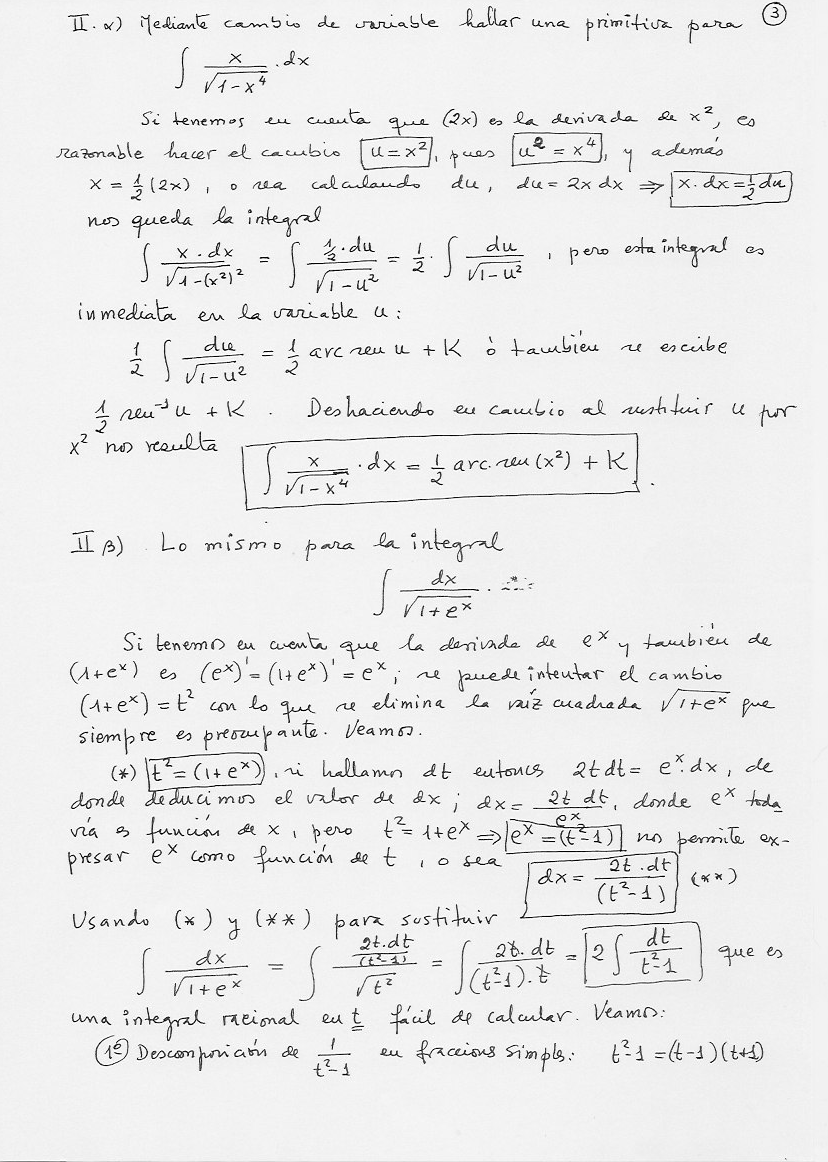 II. α) Mediante cambio de variable hallar una primitiva para ③
∫ x/√(1-x⁴) · dx
Si tenemos en cuenta que (2x) es la derivada de x², es
razonable hacer el cambio u = x², pues u² = x⁴, y además
x = 1/2 (2x), o sea calculando du, du = 2x dx ⇒ x·dx = 1/2 du
nos queda la integral
∫ x·dx/√(1-(x²)²) = ∫ 1/2·du/√(1-u²) = 1/2 · ∫ du/√(1-u²), pero esta integral es
inmediata en la variable u:
1/2 ∫ du/√(1-u²) = 1/2 arc sen u + K ò también se escribe
1/2 sen⁻¹ u + K. Deshaciendo en cambio al sustituir u por
x² nos resulta ∫ x/√(1-x⁴) · dx = 1/2 arc. sen (x²) + K.
II β) Lo mismo para la integral
∫ dx/√(1+eˣ).
Si tenemos en cuenta que la derivada de eˣ y también de
(1+eˣ) es (eˣ)' = (1+eˣ)' = eˣ; se puede intentar el cambio
(1+eˣ) = t² con lo que se elimina la raíz cuadrada √(1+eˣ) que
siempre es preocupante. Veamos.
(*) t² = (1+eˣ), si hallamos dt entonces 2t dt = eˣ·dx, de
donde deducimos el valor de dx; dx = 2t dt/eˣ, donde eˣ toda
vía es función de x, pero t² = 1+eˣ ⇒ eˣ = (t²-1) nos permite ex-
presar eˣ como función de t, o sea dx = 2t·dt/(t²-1) (**)
Usando (*) y (**) para sustituir
∫ dx/√(1+eˣ) = ∫ (2t·dt/(t²-1))/√t² = ∫ 2t·dt/((t²-1)·t) = 2∫ dt/(t²-1) que es
una integral racional en t fácil de calcular. Veamos:
1º Descomposición de 1/(t²-1) en fracciones simples: t²-1 = (t-1)(t+1)